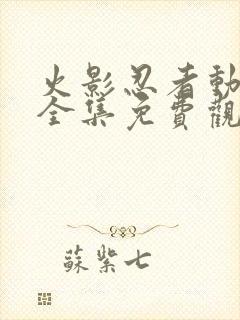 火影忍者動
全集免費觀
蘇紫七